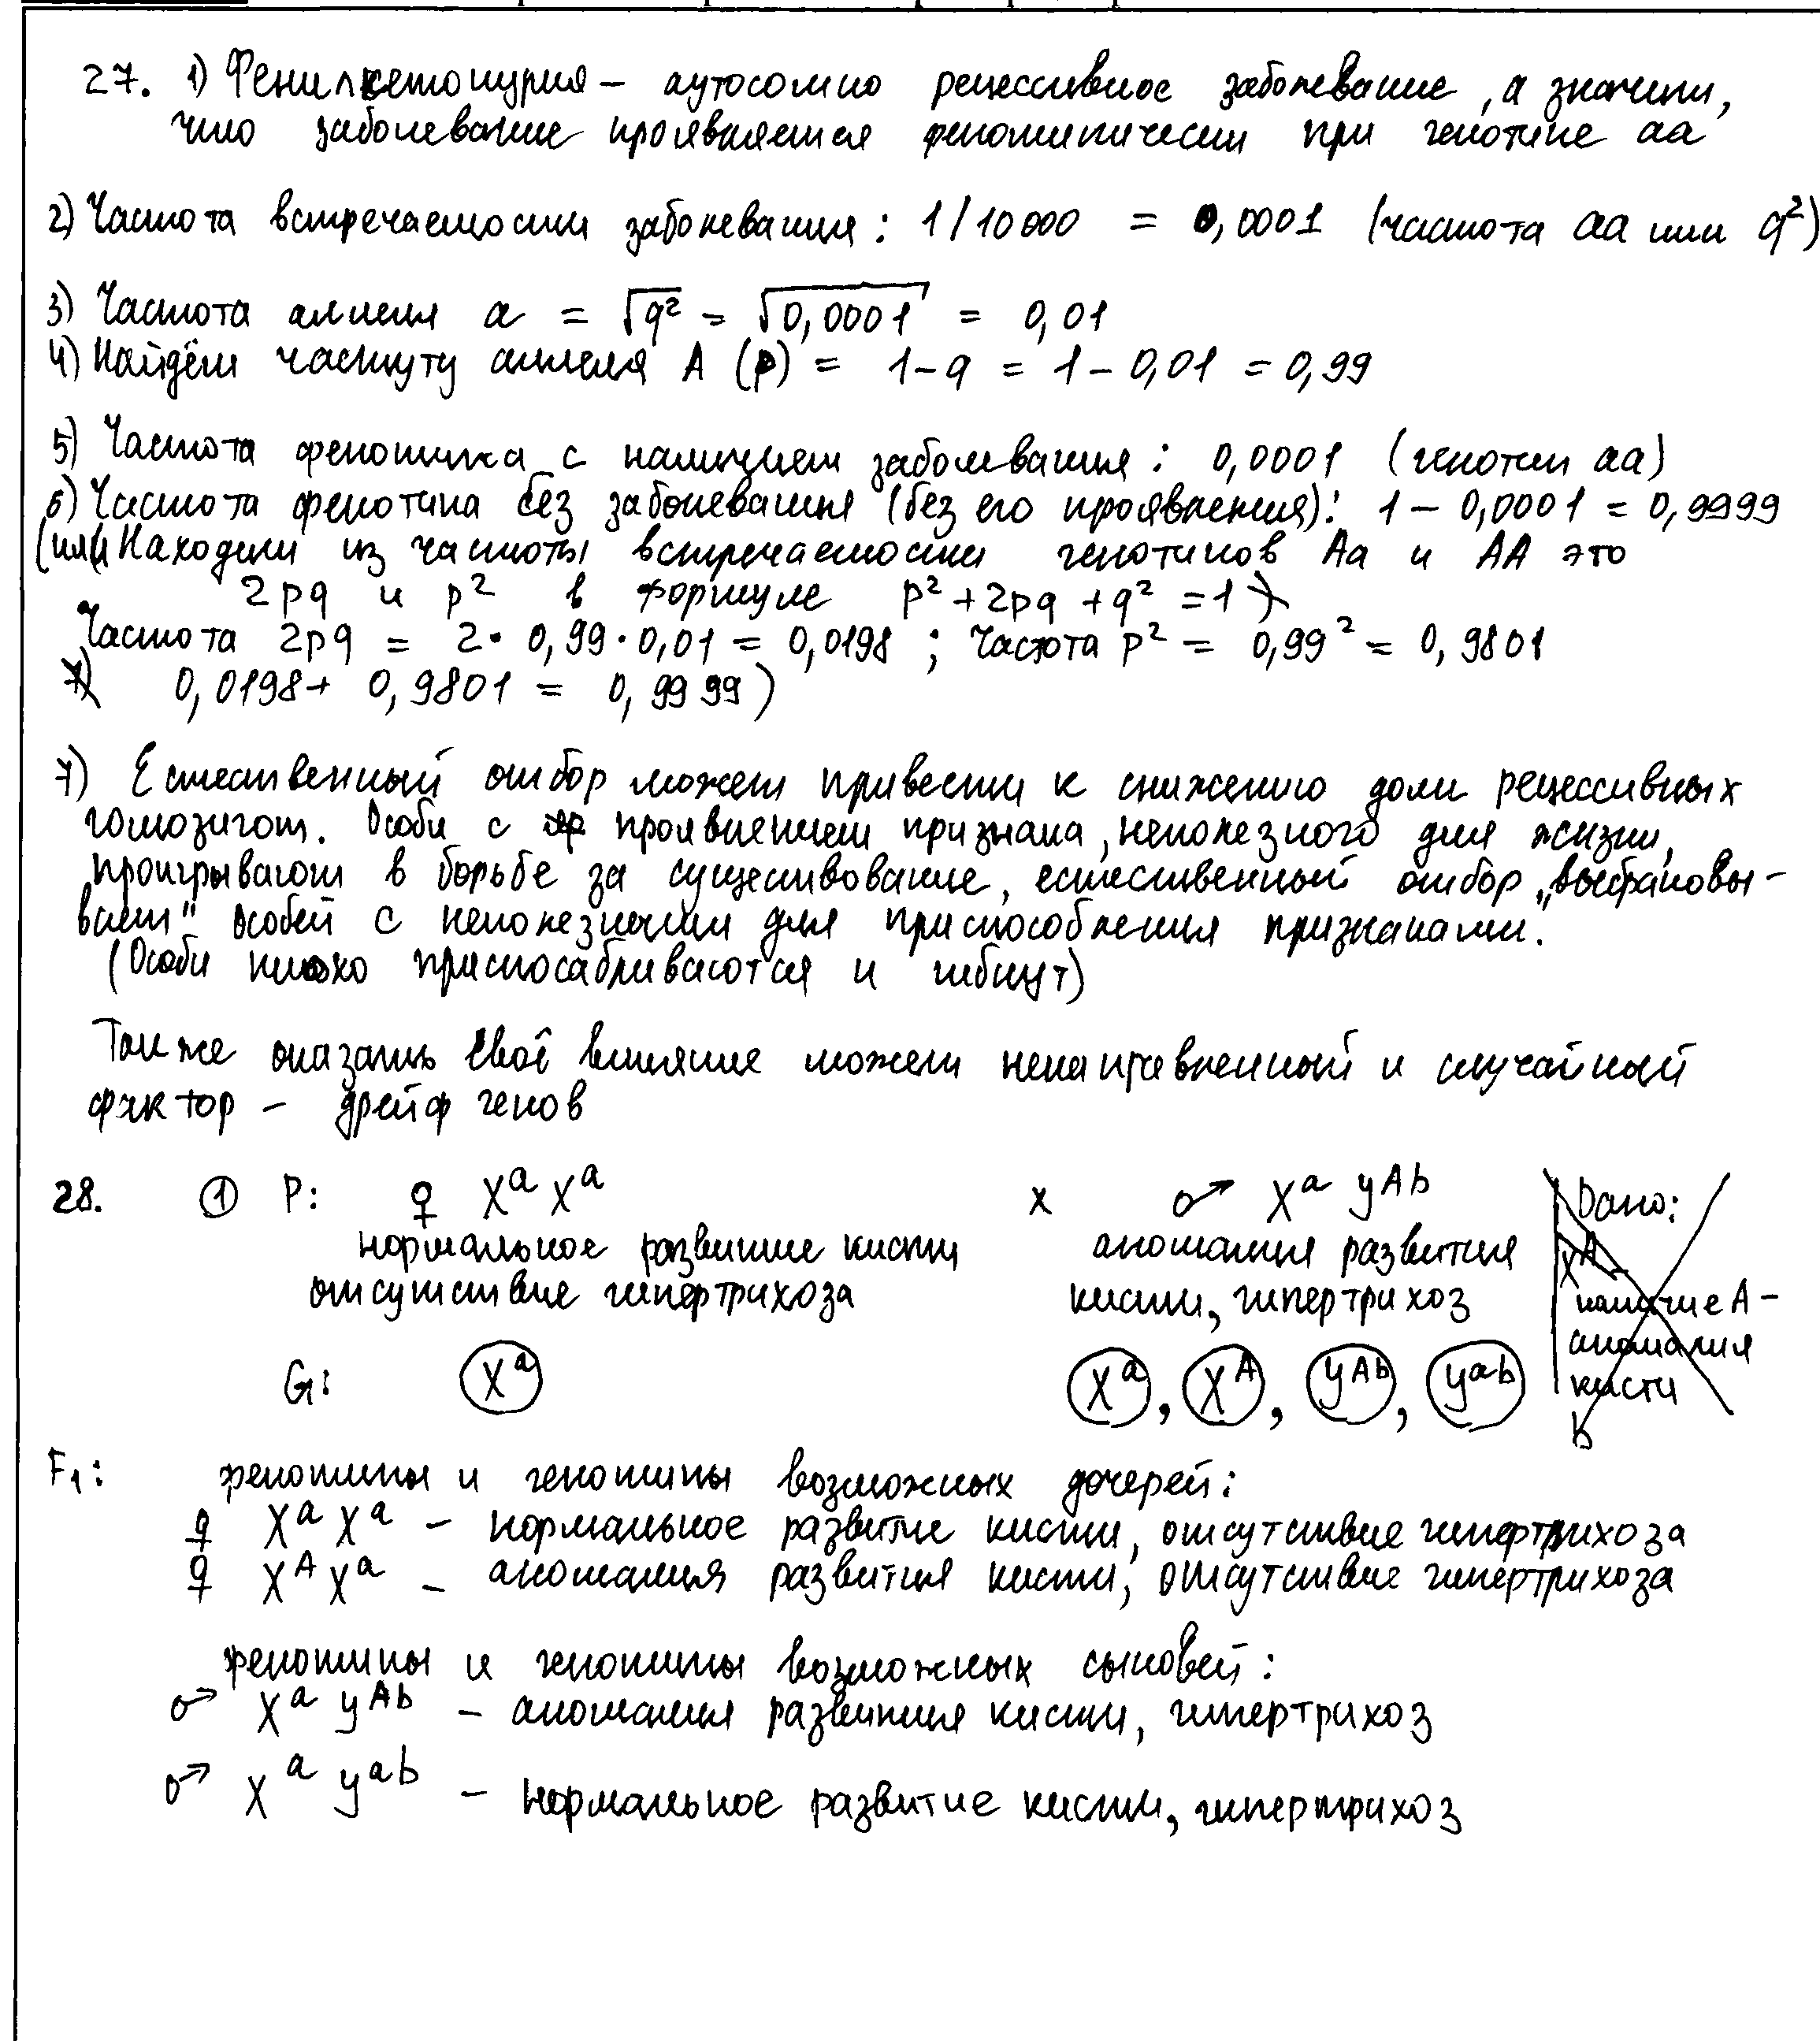 27. 1) Фенилкетонурия – аутосомно рецессивное заболевание, а значит,
что заболевание проявляется фенотипически при генотипе аа
2) Частота встречаемости заболевания: 1/10000 = 0,0001 (частота аа или q²)
3) Частота аллеля a = √q² = √0,0001 = 0,01
4) Найдём частоту аллеля A (p) = 1-q = 1-0,01 = 0,99
5) Частота фенотипа с наличием заболевания: 0,0001 (генотип аа)
6) Частота фенотипа без заболевания (без его проявления): 1-0,0001 = 0,9999
(или Находим из частоты встречаемости генотипов Аа и АА это
2pq и p² в формуле p²+2pq+q²=1
Частота 2pq = 2·0,99·0,01 = 0,0198; Частота p² = 0,99² = 0,9801
0,0198+0,9801 = 0,9999)
7) Естественный отбор может привести к снижению доли рецессивных
гомозигот. Особи с проявлением признака, неполезного для жизни,
проигрывают в борьбе за существование, естественный отбор „выбраковы-
вает" особей с неполезными для приспособления признаками.
(Особи плохо приспосабливаются и гибнут)
Также оказать своё влияние может ненаправленный и случайный
фактор – дрейф генов
28. ① P: ♀ Xᵃ Xᵃ x ♂ Xᵃ yᴬᵇ
нормальное развитие кисти аномалия развития
отсутствие гипертрихоза кисти, гипертрихоз
Дано:
Xᴬ –
наличие А –
аномалия
кисти
b
G: Xᵃ Xᵃ, Xᴬ, yᴬᵇ, yᵃᵇ
F₁: фенотипы и генотипы возможных дочерей:
♀ Xᵃ Xᵃ – нормальное развитие кисти, отсутствие гипертрихоза
♀ Xᴬ Xᵃ – аномалия развития кисти, отсутствие гипертрихоза
фенотипы и генотипы возможных сыновей:
♂ Xᵃ yᴬᵇ – аномалия развития кисти, гипертрихоз
♂ Xᵃ yᵃᵇ – нормальное развитие кисти, гипертрихоз